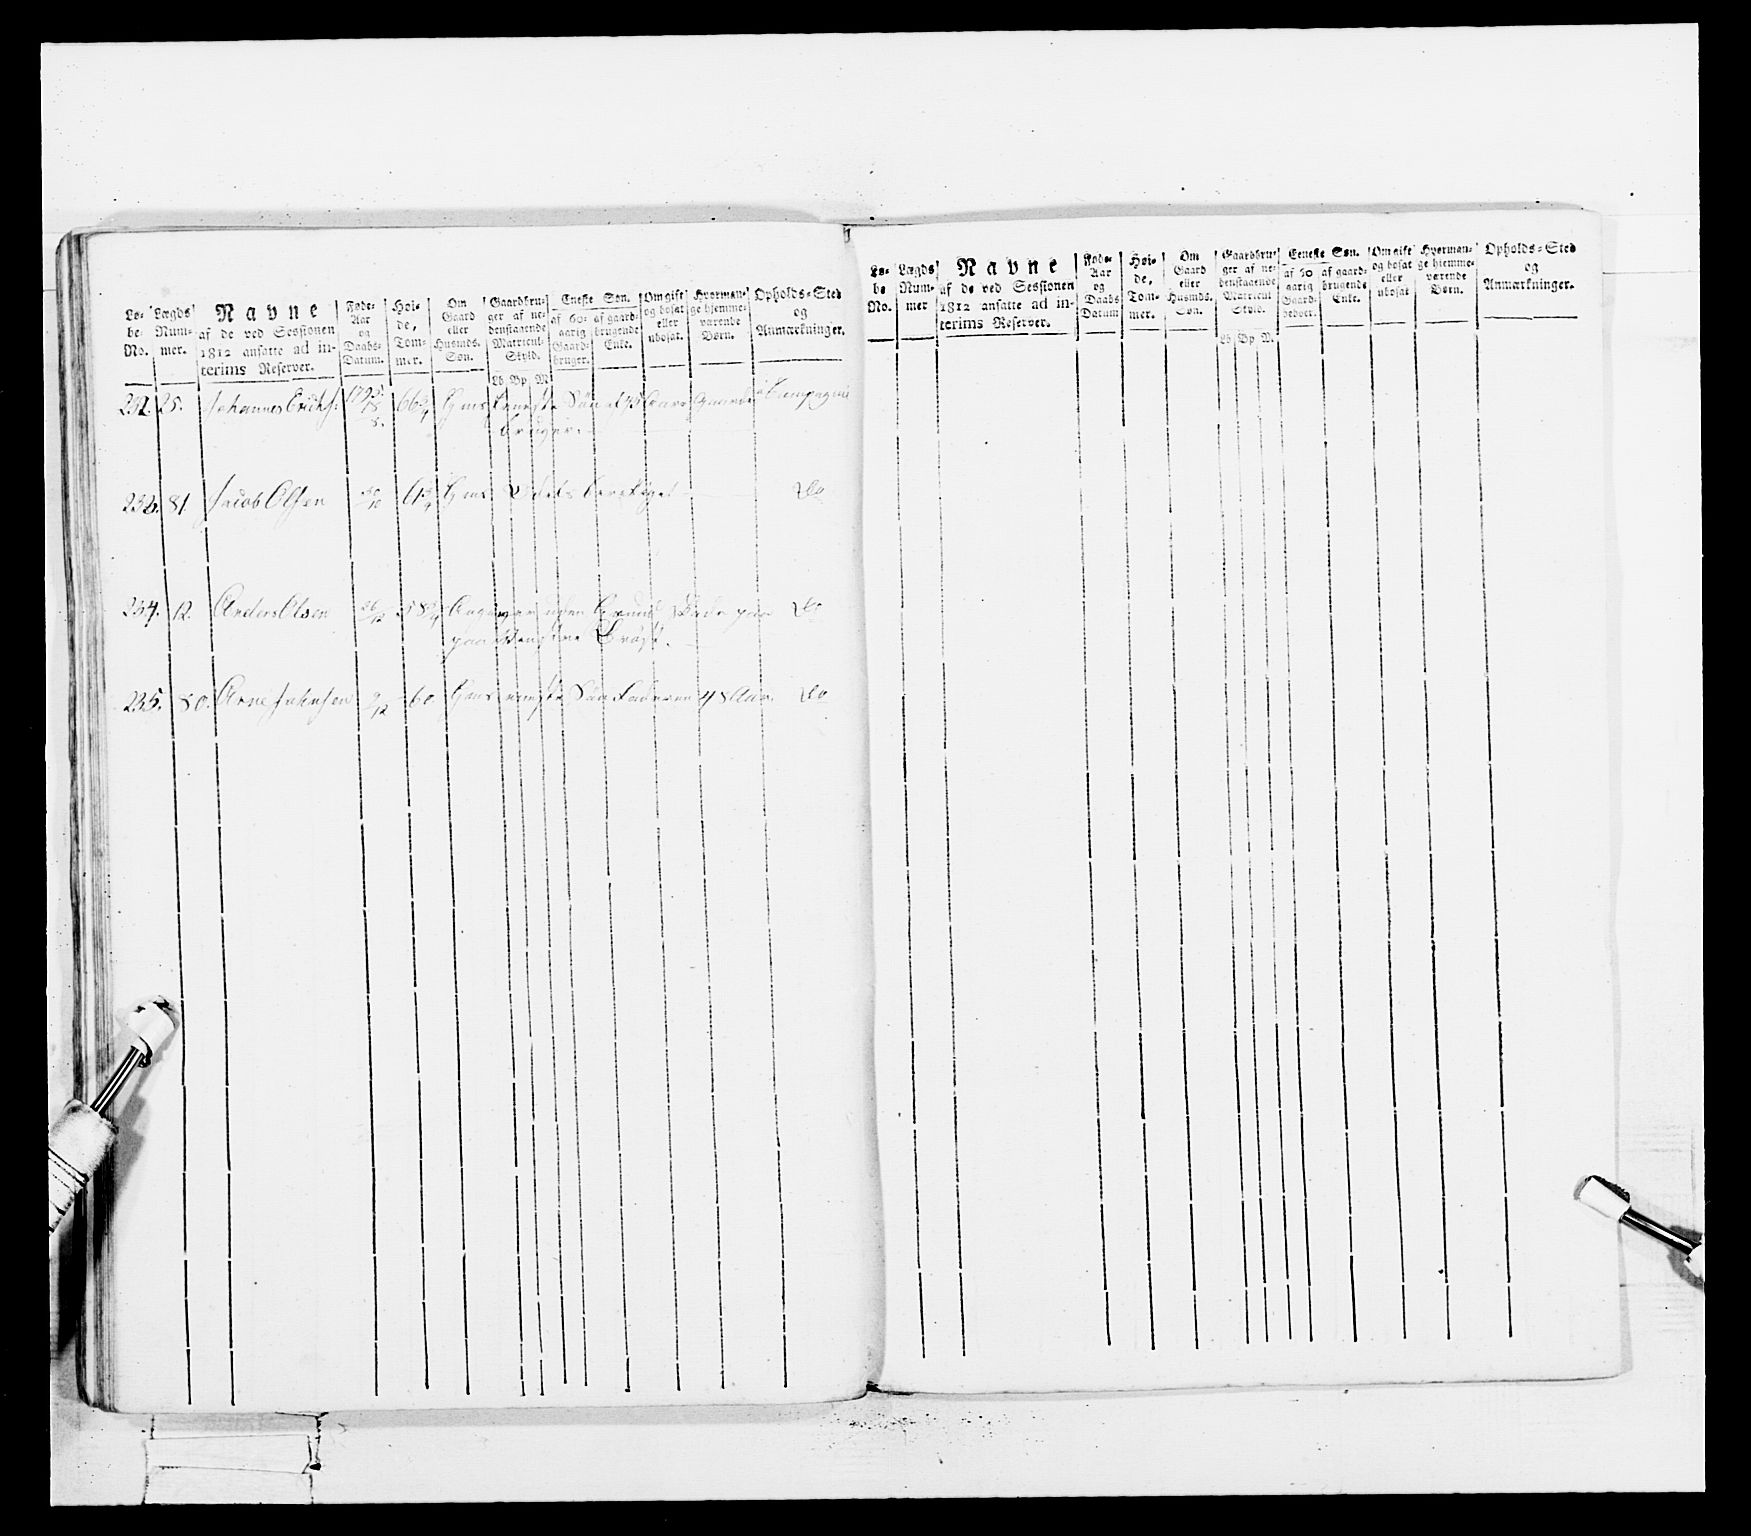 Lø-
be-
No.
Lægds
Num-
mer.
Navne
af de ved Sessionen
1812 ansatte ad in-
terims Reserver.
Føde-
Aar
og
Daabs-
Datum.
Høi-
de,
Tom-
mer.
Om
Gaard
eller
Husmds.
Søn.
Gaardbru-
ger af ne-
denstaaende
Matricul-
Skyld.
Lb. Bp. M.
Eneste Søn.
af 60-
aarig
Gaard-
bruger.
af gaard-
brugende
Enke.
Om gift
og bosat
eller
ubosat.
Hvorman-
ge hjemme-
værende
Børn.
Opholds-Sted
og
Anmærkninger.
232. 25. Johannes Erichs: 66 3/4 Hms Eneste Søn af Gaard Compagnie
bruger.
233. 81. Jacob Olsen 30/10 61 3/4 Hms Do
234. 12. Anders Olsen 26/12 58 3/4 uden Do
235. 80. Arne Johnsen 9/12 60. Hms eneste Søn Faderen 48 Aar. Do
Lø-
be
No.
Lægds
Num-
mer
Navne
af de ved Sessionen
1812 ansatte ad in-
terims Reserver.
Føde-
Aar
og
Daabs
Datum
Høi-
de,
Tom-
mer.
Om
Gaard
eller
Husmds.
Søn.
Gaardbru-
ger af ne-
denstaaende
Matricul
Skyld.
Lb. Bp. M.
Eeneste Søn.
af 60
aarig
Gaard-
af gaard-
brugende
Enke.
Om gift
og bosat
eller
ubosat
Hvorman-
ge hjemme-
værende
Børn.
Opholds-Sted
og
Anmærkninger.